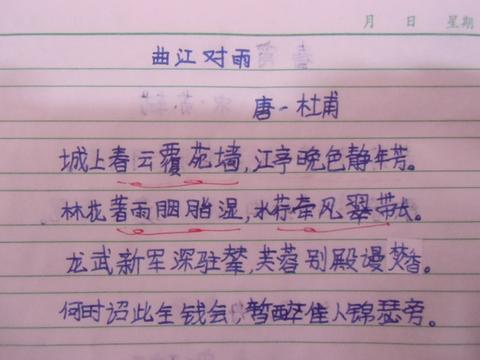 月 日 星期
曲江对雨
唐-杜甫
城上春云覆苑墙,江亭晚色静年芳。
林花著雨胭脂湿,水荇牵风翠带长。
龙武新军深驻辇,芙蓉别殿谩焚香。
何时诏此金钱会,暂醉佳人锦瑟旁。